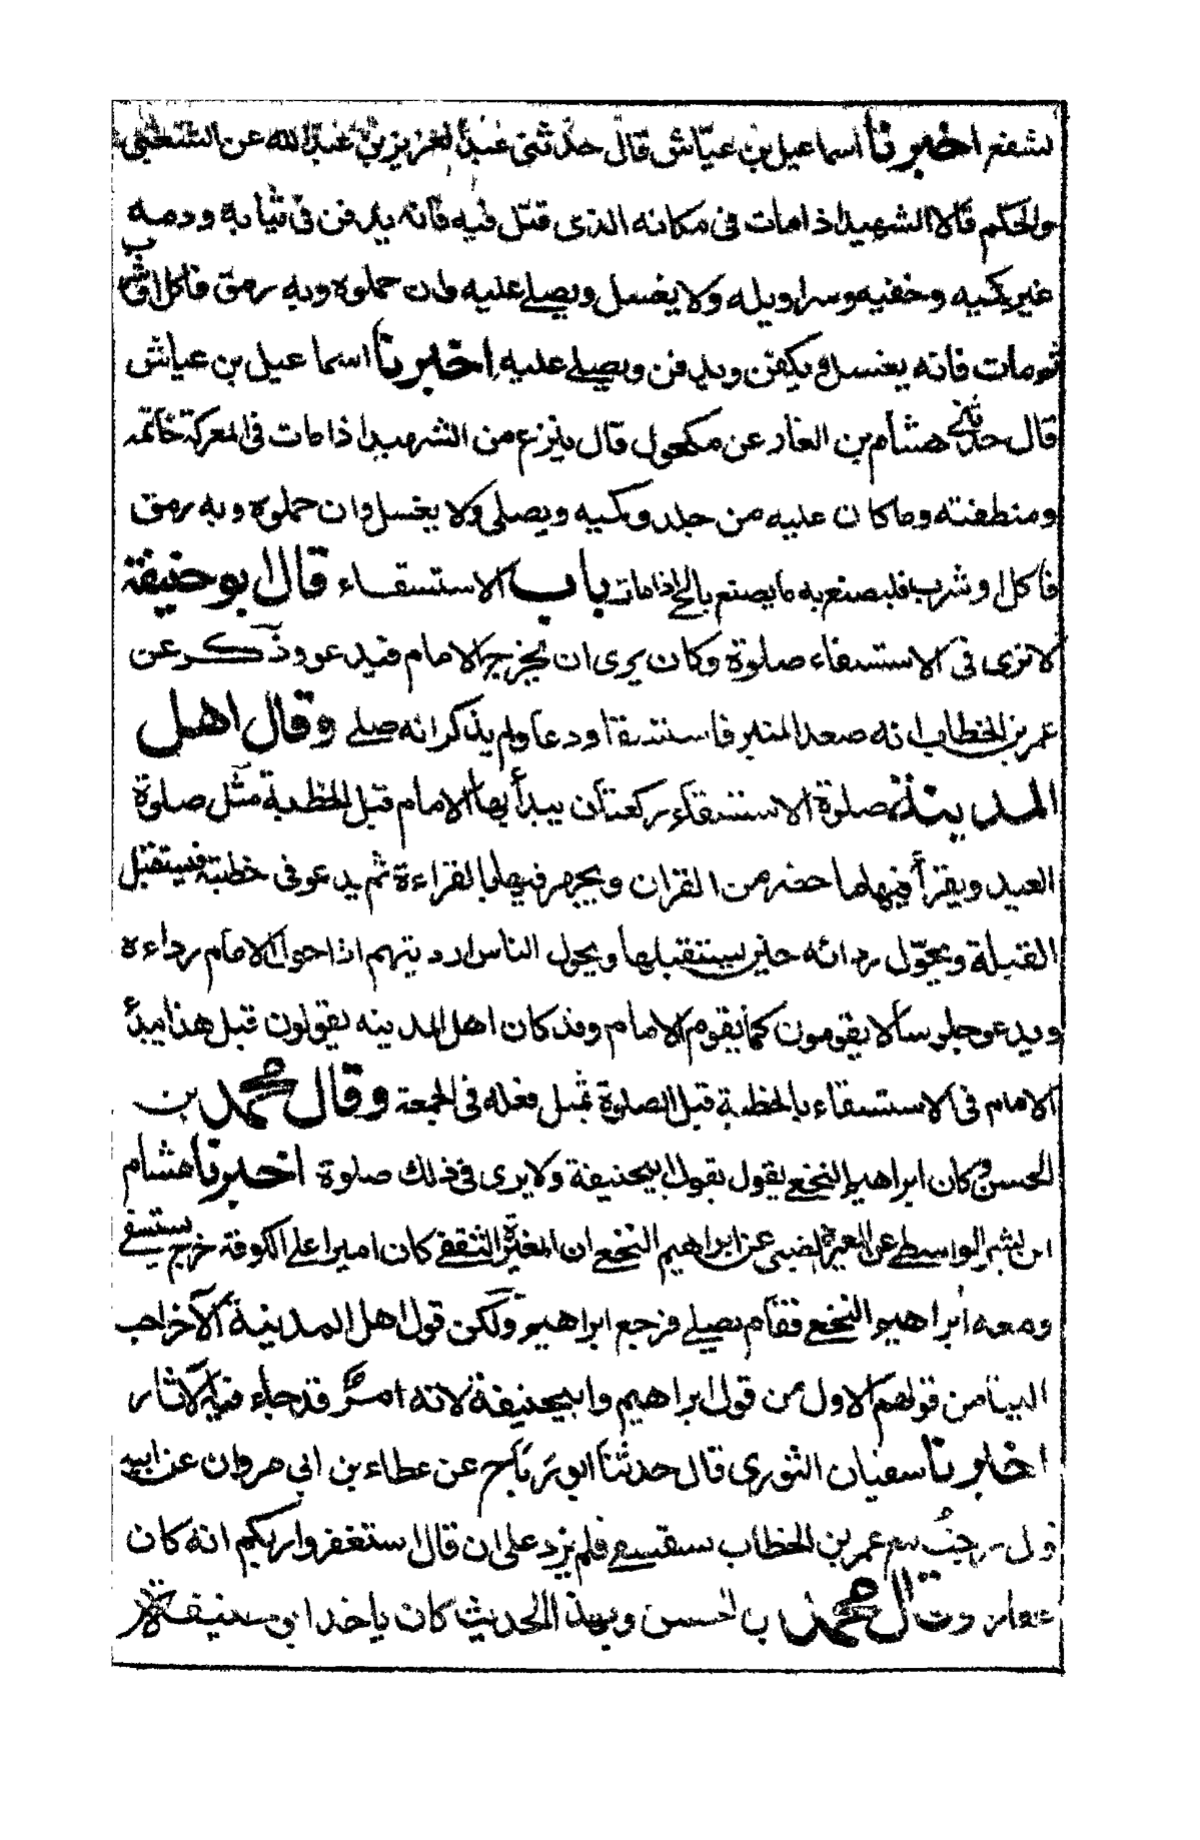 يشفع اخبرنا اسماعيل بن عياش قال حدثني عبد العزيز بن عبد الله عن الشعبي
والحكم قالا الشهيد اذا مات في مكانه الذي قتل فيه فانه يدفن في ثيابه ودمه
غير كميه وخفيه وسراويله ولا يغسل ويصلى عليه وان حملوه وبه رمق فاكل او شرب
ثم مات فانه يغسل ويكفن ويدفن ويصلى عليه اخبرنا اسماعيل بن عياش
قال حدثني هشام بن الغار عن مكحول قال ينزع من الشهيد اذا مات في المعركة خاتمه
ومنطقته وما كان عليه من جلد وكميه ويصلى ولا يغسل وان حملوه وبه رمق
فاكل او شرب فليصنع به ما يصنع بالحي اذا مات باب الاستسقاء قال ابو حنيفة
لا نرى في الاستسقاء صلوة وكان يرى ان يخرج الامام فيدعو وذكر عن
عمر بن الخطاب انه صعد المنبر فاستسقا ودعا ولم يذكر انه صلى وقال اهل
المدينة صلوة الاستسقاء ركعتان يبدأ بها الامام قبل الخطبة مثل صلوة
العيد ويقرأ فيهما ما حضر من القران ويجهر فيهما بالقراءة ثم يدعو في خطبته فيستقبل
القبلة ويحول ردائه حين يستقبلها ويحول الناس ارديتهم اذا حول الامام رداءه
ويدعو جلوسا لا يقومون كما يقوم الامام وقد كان اهل المدينه يقولون قبل هذا يبدأ
الامام في الاستسقاء بالخطبة قبل الصلوة بمثل فعله في الجمعة وقال محمد بن
الحسن وكان ابراهيم النخعي يقول بقول ابيحنيفة ولا يرى في ذلك صلوة اخبرنا هشام
ابن بشير الواسطي عن المغيرة الضبي عن ابراهيم النخعي ان المغيرة الثقفي كان اميرا على الكوفة خرج يستسقي
ومعه ابراهيم النخعي فقام يصلي فرجع ابراهيم ولكن قول اهل المدينة الآخر احب
الينا من قولهم الاول من قول ابراهيم وابيحنيفة لانه امر قد جاء فيه الآثار
اخبرنا سفيان الثوري قال حدثنا ابو رباح عن عطاء بن ابي مروان عن ابيه
قال خرجت مع عمر بن الخطاب يستسقي فلم يزد على ان قال استغفروا ربكم انه كان
غفارا وقال محمد بن الحسن وبهذا الحديث كان ياخذ ابي حنيفة